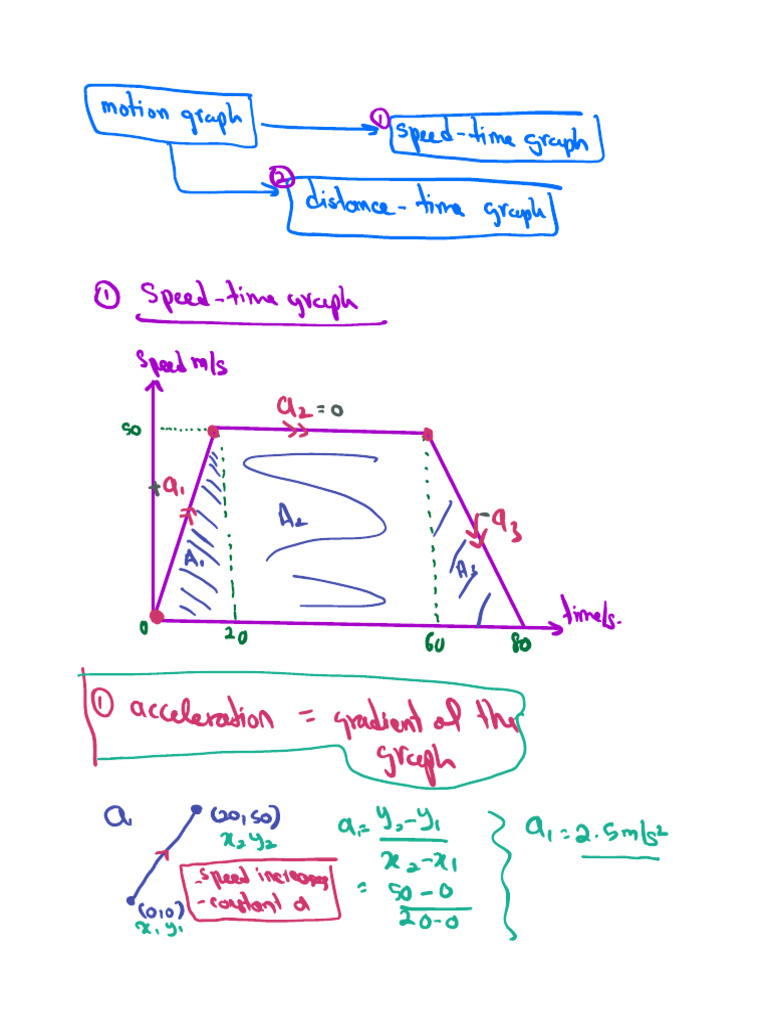 motion graph
① speed-time graph
② distance-time graph
① Speed-time graph
Speed m/s
a₂ = 0
50
+a₁
A₂
-a₃
A₁
A₃
0
20
60
80
time/s.
① acceleration = gradient of the
graph
a
(20,50)
x₂ y₂
(0,0)
x₁ y₁
- speed increases
- constant a
a₁ = y₂ - y₁
x₂ - x₁
= 50 - 0
20 - 0
a₁ = 2.5 m/s²